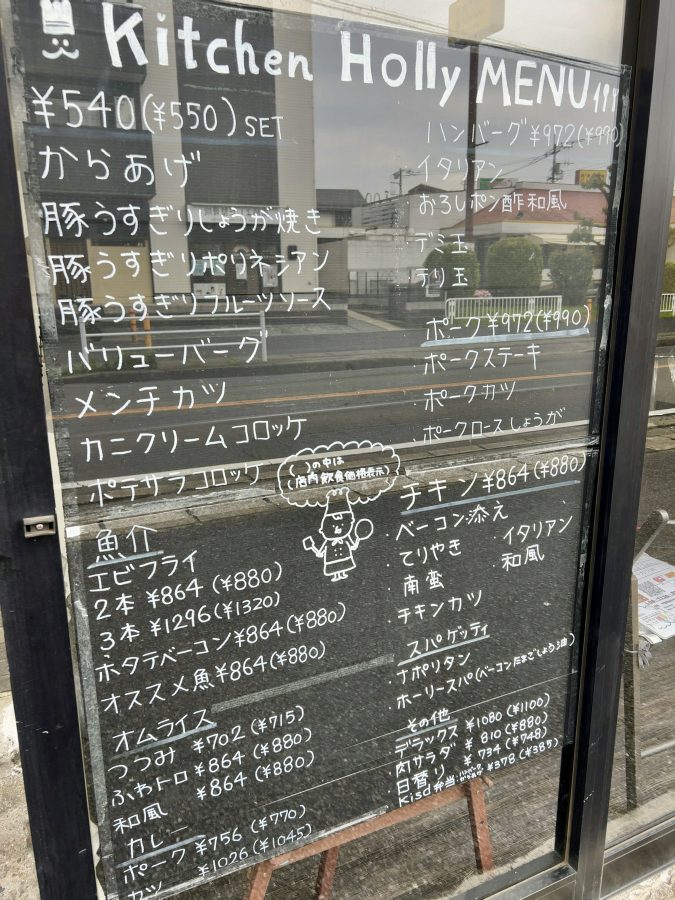 Kitchen Holly MENU
¥540(¥550) SET
からあげ
豚うすぎりしょうが焼き
豚うすぎりポリネシアン
豚うすぎりフルーツソース
バリューバーグ
メンチカツ
カニクリームコロッケ
ポテサラコロッケ
魚介
エビフライ
2本 ¥864(¥880)
3本 ¥1296(¥1320)
ホタテベーコン ¥864(¥880)
オススメ魚 ¥864(¥880)
オムライス
つつみ ¥702(¥715)
ふわトロ ¥864(¥880)
和風 ¥864(¥880)
カレー
ポーク ¥756(¥770)
カツ ¥1026(¥1045)
( )の中は
(店内飲食価格表示)
ハンバーグ ¥972(¥990)
・イタリアン
・おろしポン酢和風
・デミ玉
・テリ玉
ポーク ¥972(¥990)
・ポークステーキ
・ポークカツ
・ポークロースしょうが
チキン ¥864(¥880)
・ベーコン添え
・てりやき ・イタリアン
・南蛮 ・和風
・チキンカツ
スパゲッティ
・ナポリタン
・ホーリースパ(ベーコンたまごしょうゆ)
その他
デラックス ¥1080(¥1100)
肉サラダ ¥810(¥880)
日替り ¥734(¥748)
Kisd弁当 ¥378(¥385)